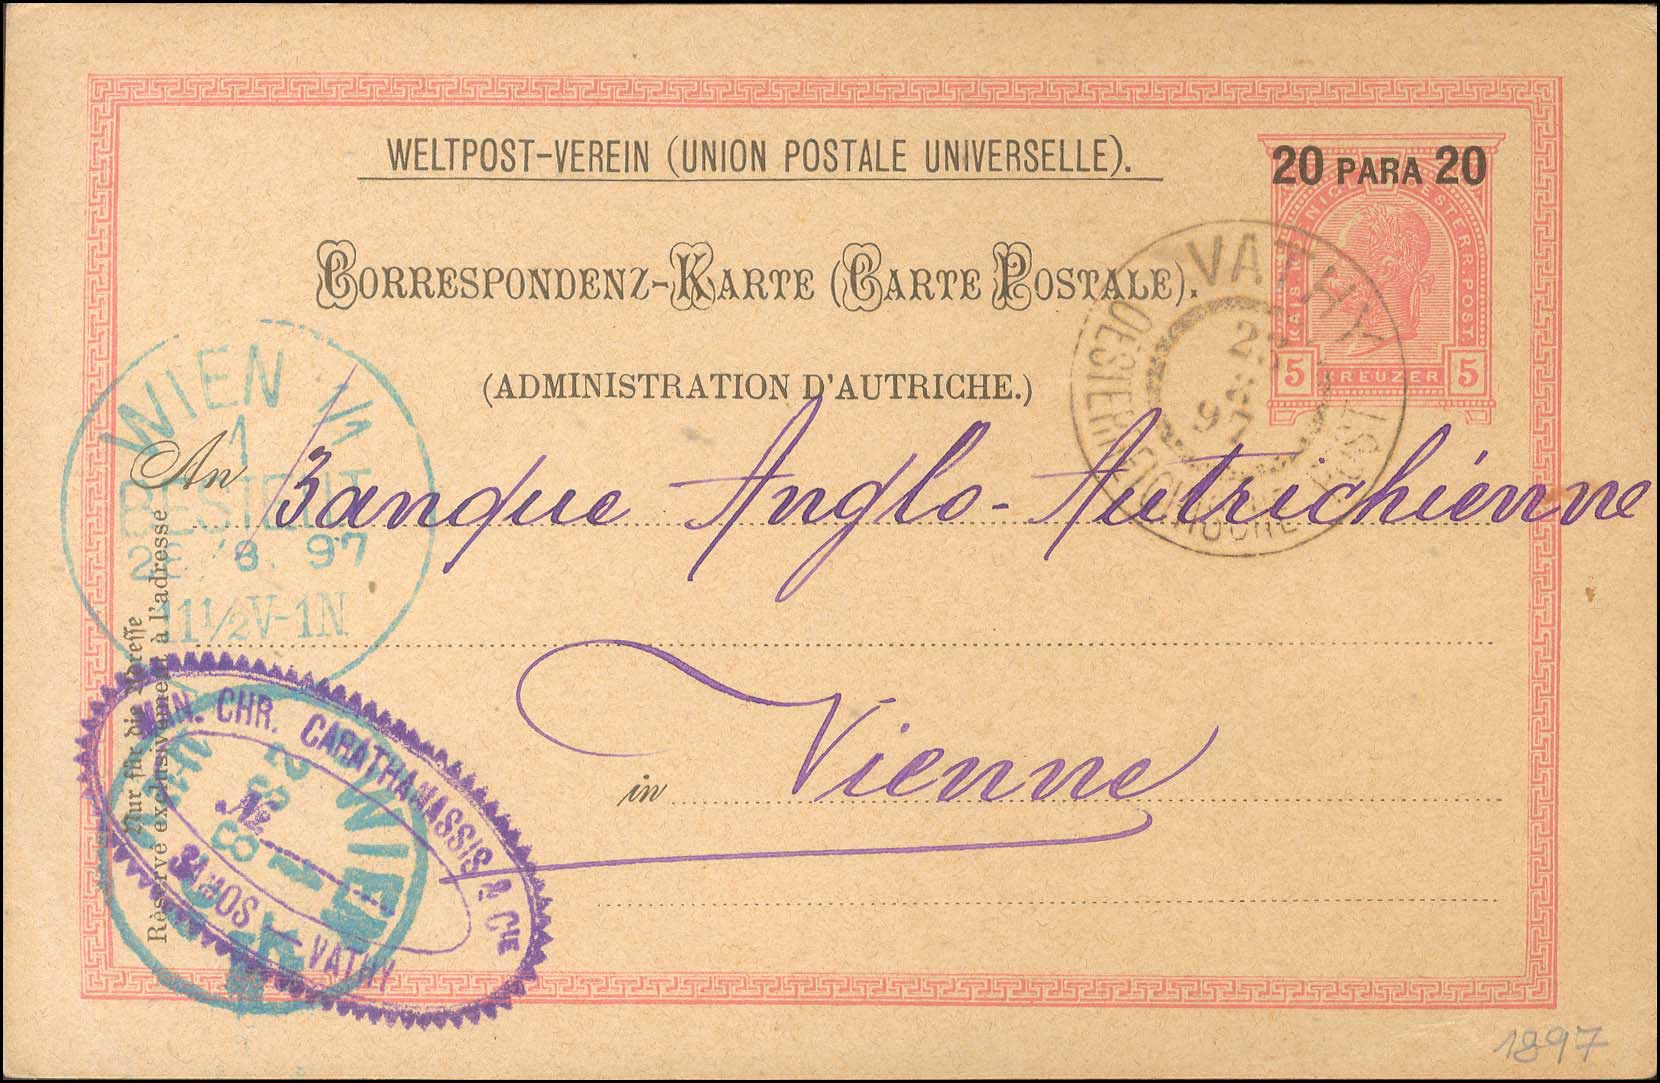 WELTPOST-VEREIN (UNION POSTALE UNIVERSELLE).
20 PARA 20
KAIS. KÖNIGL. OESTERR. POST
5 KREUZER 5
CORRESPONDENZ-KARTE (CARTE POSTALE).
(ADMINISTRATION D'AUTRICHE.)
VATHY
97
OESTERREICHISCHE POST
WIEN 1/1
1
BESTELLT
8. 97
11½V-1N
An Banque Anglo-Autrichiénne
in Vienne
Nur für die Adresse
Réservé exclusivement à l'adresse
MAN. CHR. CARATHANASSIS & CIE
No
SAMOS - VATHY
WIEN
1897